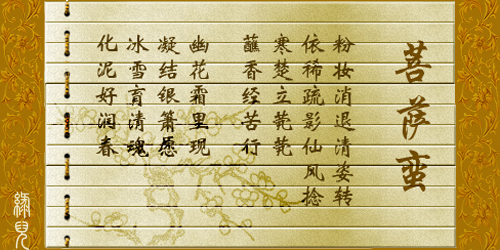 菩萨蛮
粉妆消退清姿转
依稀疏影仙风捻
寒楚立茕茕
蘸香经苦行
幽花霜里现
凝结银箫愿
冰雪育清魂
化泥好润春